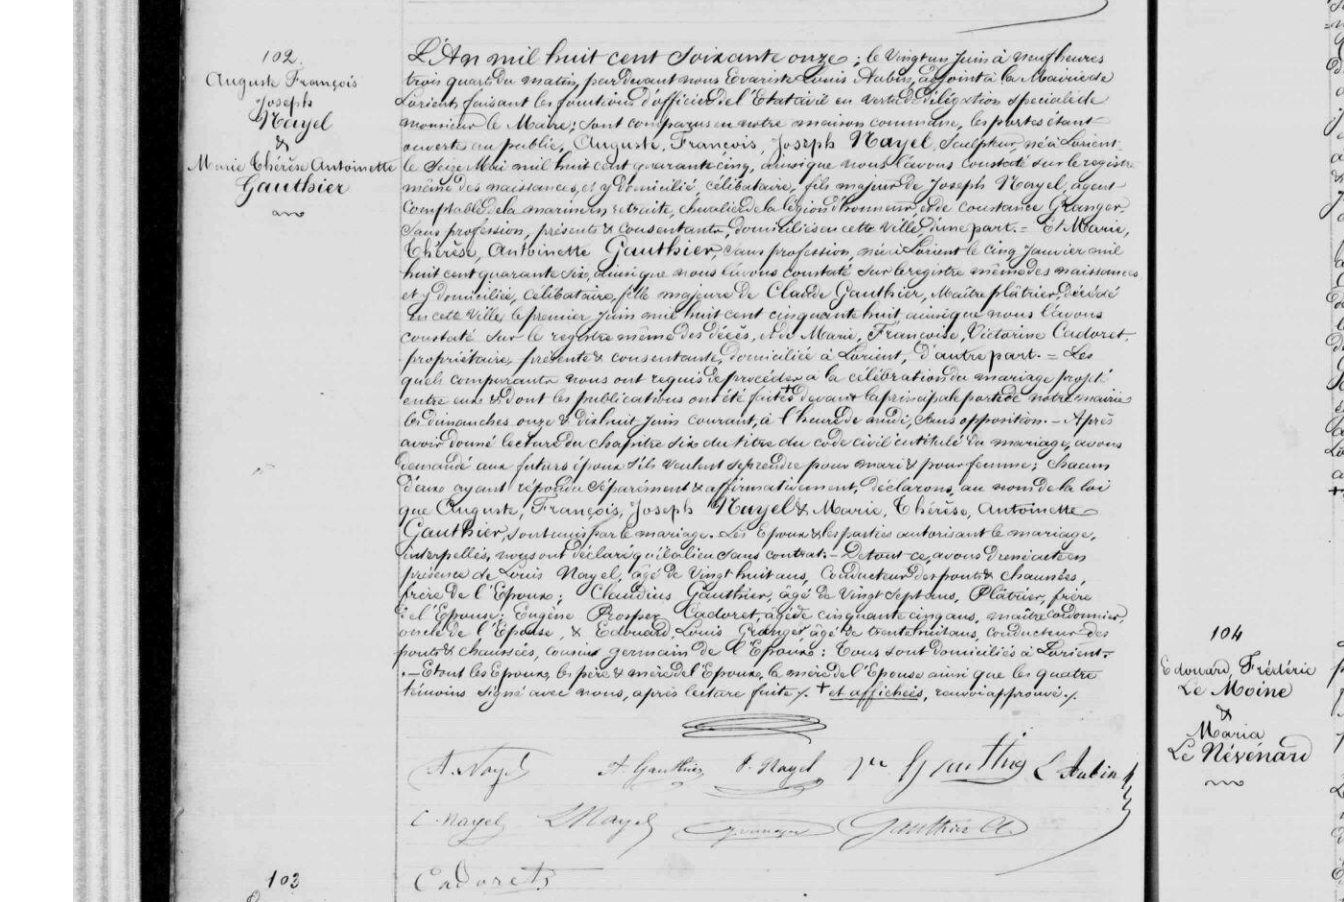 102.
Auguste François
Joseph
Nayel
&
Marie Thérèse Antoinette
Gauthier
L'An mil huit cent soixante onze ; le vingt un juin à neuf heures
trois quarts du matin, par devant nous Evariste Louis Aubin, adjoint à la Mairie de
Lorient, faisant les fonctions d'officier de l'Etat civil en vertu de délégation spéciale de
monsieur le Maire ; sont comparus en notre maison commune, les portes étant
ouvertes au public, Auguste, François, Joseph Nayel, sculpteur, né à Lorient
le seize Mai mil huit cent quarante cinq, ainsi que nous l'avons constaté sur le registre
même des naissances, et y domicilié, célibataire, fils majeur de Joseph Nayel, agent
comptable de la marine en retraite, chevalier de la légion d'honneur, & de Constance Granger,
sans profession, présents & consentants, domiciliés en cette ville, d'une part. = Et Marie,
Thérèse, Antoinette Gauthier, sans profession, née à Lorient le cinq Janvier mil
huit cent quarante six, ainsi que nous l'avons constaté sur le registre même des naissances
et y domiciliée, célibataire, fille majeure de Claude Gauthier, Maître plâtrier, décédé
en cette ville, le premier juin mil huit cent cinquante huit ainsi que nous l'avons
constaté sur le registre même des décès, & de Marie, Françoise, Victorine Cadoret
propriétaire, présente & consentante, domiciliée à Lorient, d'autre part. = Les
quels comparants nous ont requis de procéder à la célébration du mariage projeté
entre eux & dont les publications ont été faites + devant la principale porte de notre mairie
les dimanches onze & dix huit juin courant, à l'heure de midi, sans opposition. - Après
avoir donné lecture du chapitre six du titre du code civil intitulé du mariage, avons
demandé aux futurs époux s'ils veulent se prendre pour mari & pour femme ; chacun
d'eux ayant répondu séparément & affirmativement, déclarons, au nom de la loi
que Auguste, François, Joseph Nayel & Marie, Thérèse, Antoinette
Gauthier, sont unis par le mariage. Les Epoux & les parties autorisant le mariage,
interpellés, nous ont déclaré qu'il a lieu sans contrat. - De tout ce, avons dressé acte en
présence de Louis Nayel, âgé de vingt huit ans, conducteur des ponts & chaussées,
frère de l'Epoux ; Claudius Gauthier, âgé de vingt sept ans, Plâtrier, frère
de l'Epouse ; Eugène Prosper Cadoret, âgé de cinquante cinq ans, maître cordonnier,
oncle de l'Epouse, & Edouard Louis Granger âgé de trente huit ans, conducteur des
ponts & chaussées, cousin germain de l'Epoux : Tous sont domiciliés à Lorient.
- Et ont les Epoux, les père & mère de l'Epoux, la mère de l'Epouse ainsi que les quatre
témoins signé avec nous, après lecture faite /. + et affichées, renvoi approuvé /.
A. Nayel
A. Gauthier
J. Nayel
Gauthier
L Aubin
C. Nayel
L Nayel
Granger
Gauthier Cl.
Cadoret
103
104
Edouard, Frédéric
Le Moine
&
Maria
Le Névénard